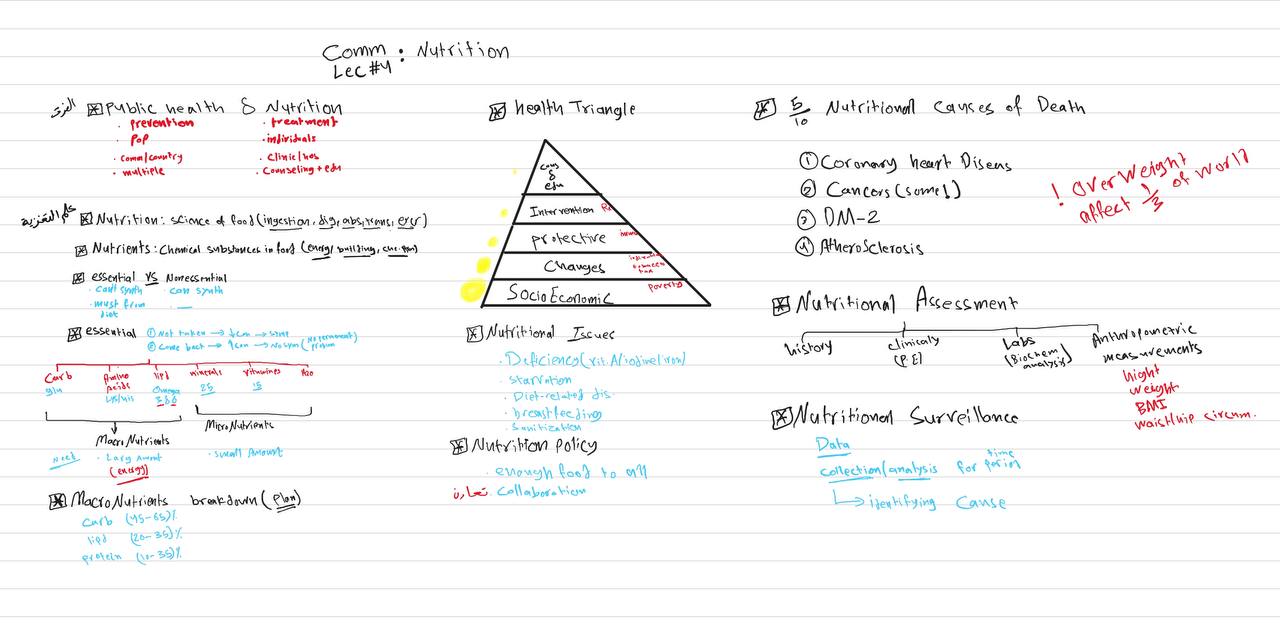 Comm : Nutrition
Lec #4
الفرق
Public health & Nutrition
. prevention
. treatment
. pop
. individuals
. comm/country
. Clinic/hos
. multiple
. Counseling + edu
علم التغذية
Nutrition : science of food (ingestion, dig, abs, trans, excr)
Nutrients : Chemical substances in food (energy building,
essential vs Nonessential
. can't synth
. can synth
. must from
diet
. —
essential
① Not taken → ↓con → symp
② Come back → ↑con → No sym (No permenent
problem
Carb
Amino
Acids
lipid
minerals
vitamines
H2O
glu
Lys/his
Omega
3 & 6
25
15
MacroNutrients
MicroNutrients
need
. Larg Amont
(energy)
. small Amount
MacroNutrients breakdown (plan)
Carb (45-65)%
lipd (20-35)%
protein (10-35)%
health Triangle
couns
&
edu
Intervention Rx
protective
Changes
SocioEconomic
poverty
Nutritional Issues
. Deficiency (vit.A/iodine/iron)
. starvation
. Diet-related dis.
. breastfeeding
. Sanitization
Nutrition policy
. enough food to all
تعاون . Collaboration
5/10 Nutritional Causes of Death
① Coronary heart Diseas
② Cancers (some!)
③ DM-2
④ AtheroSclerosis
! OverWeight
affect 1/3 of World
Nutritional Assessment
history
clinically
(P.E)
Labs
(Biochem
analysis)
Anthropometric
measurements
hight
weight
BMI
waist/hip circum.
Nutritional Surveillance
Data
collection/analysis for time
period
↳ identifying Cause